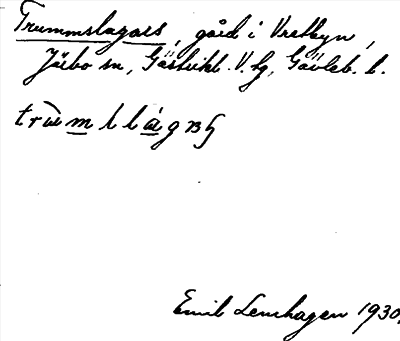 Trummslagars, gård i Vretbyn,
Järbo sn, Gästrikl. V. tg, Gävleb. l.
Emil Lenhagen 1930.